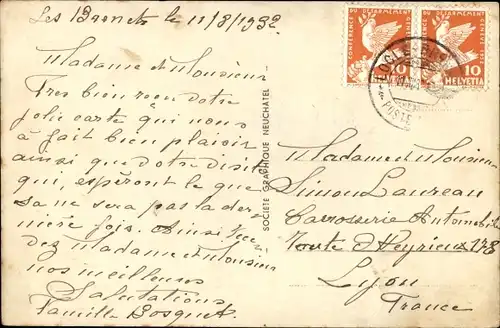 Les Brenets le 11/8/1932.
Madame et Monsieur
Tres bien reçu votre
jolie carte qui nous
a fait bien plaisir
ainsi que votre visite
qui, espèront le que
sa ne sera pas la der
nière fois. Ainsi rece
vez Madame et Monsieur
nos meilleures
Salutations
Famille Bosquet.
SOCIÉTÉ GRAPHIQUE NEUCHATEL
CONFÉRENCE DU DÉSARMEMENT GENÈVE 1932
10
HELVETIA
CONFÉRENCE DU DÉSARMEMENT GENÈVE 1932
10
HELVETIA
LOCLE
Madame et Monsieur
Simon Laureau
Carrosserie Automobile
Route d'Heyrieux 178
Lyon
France